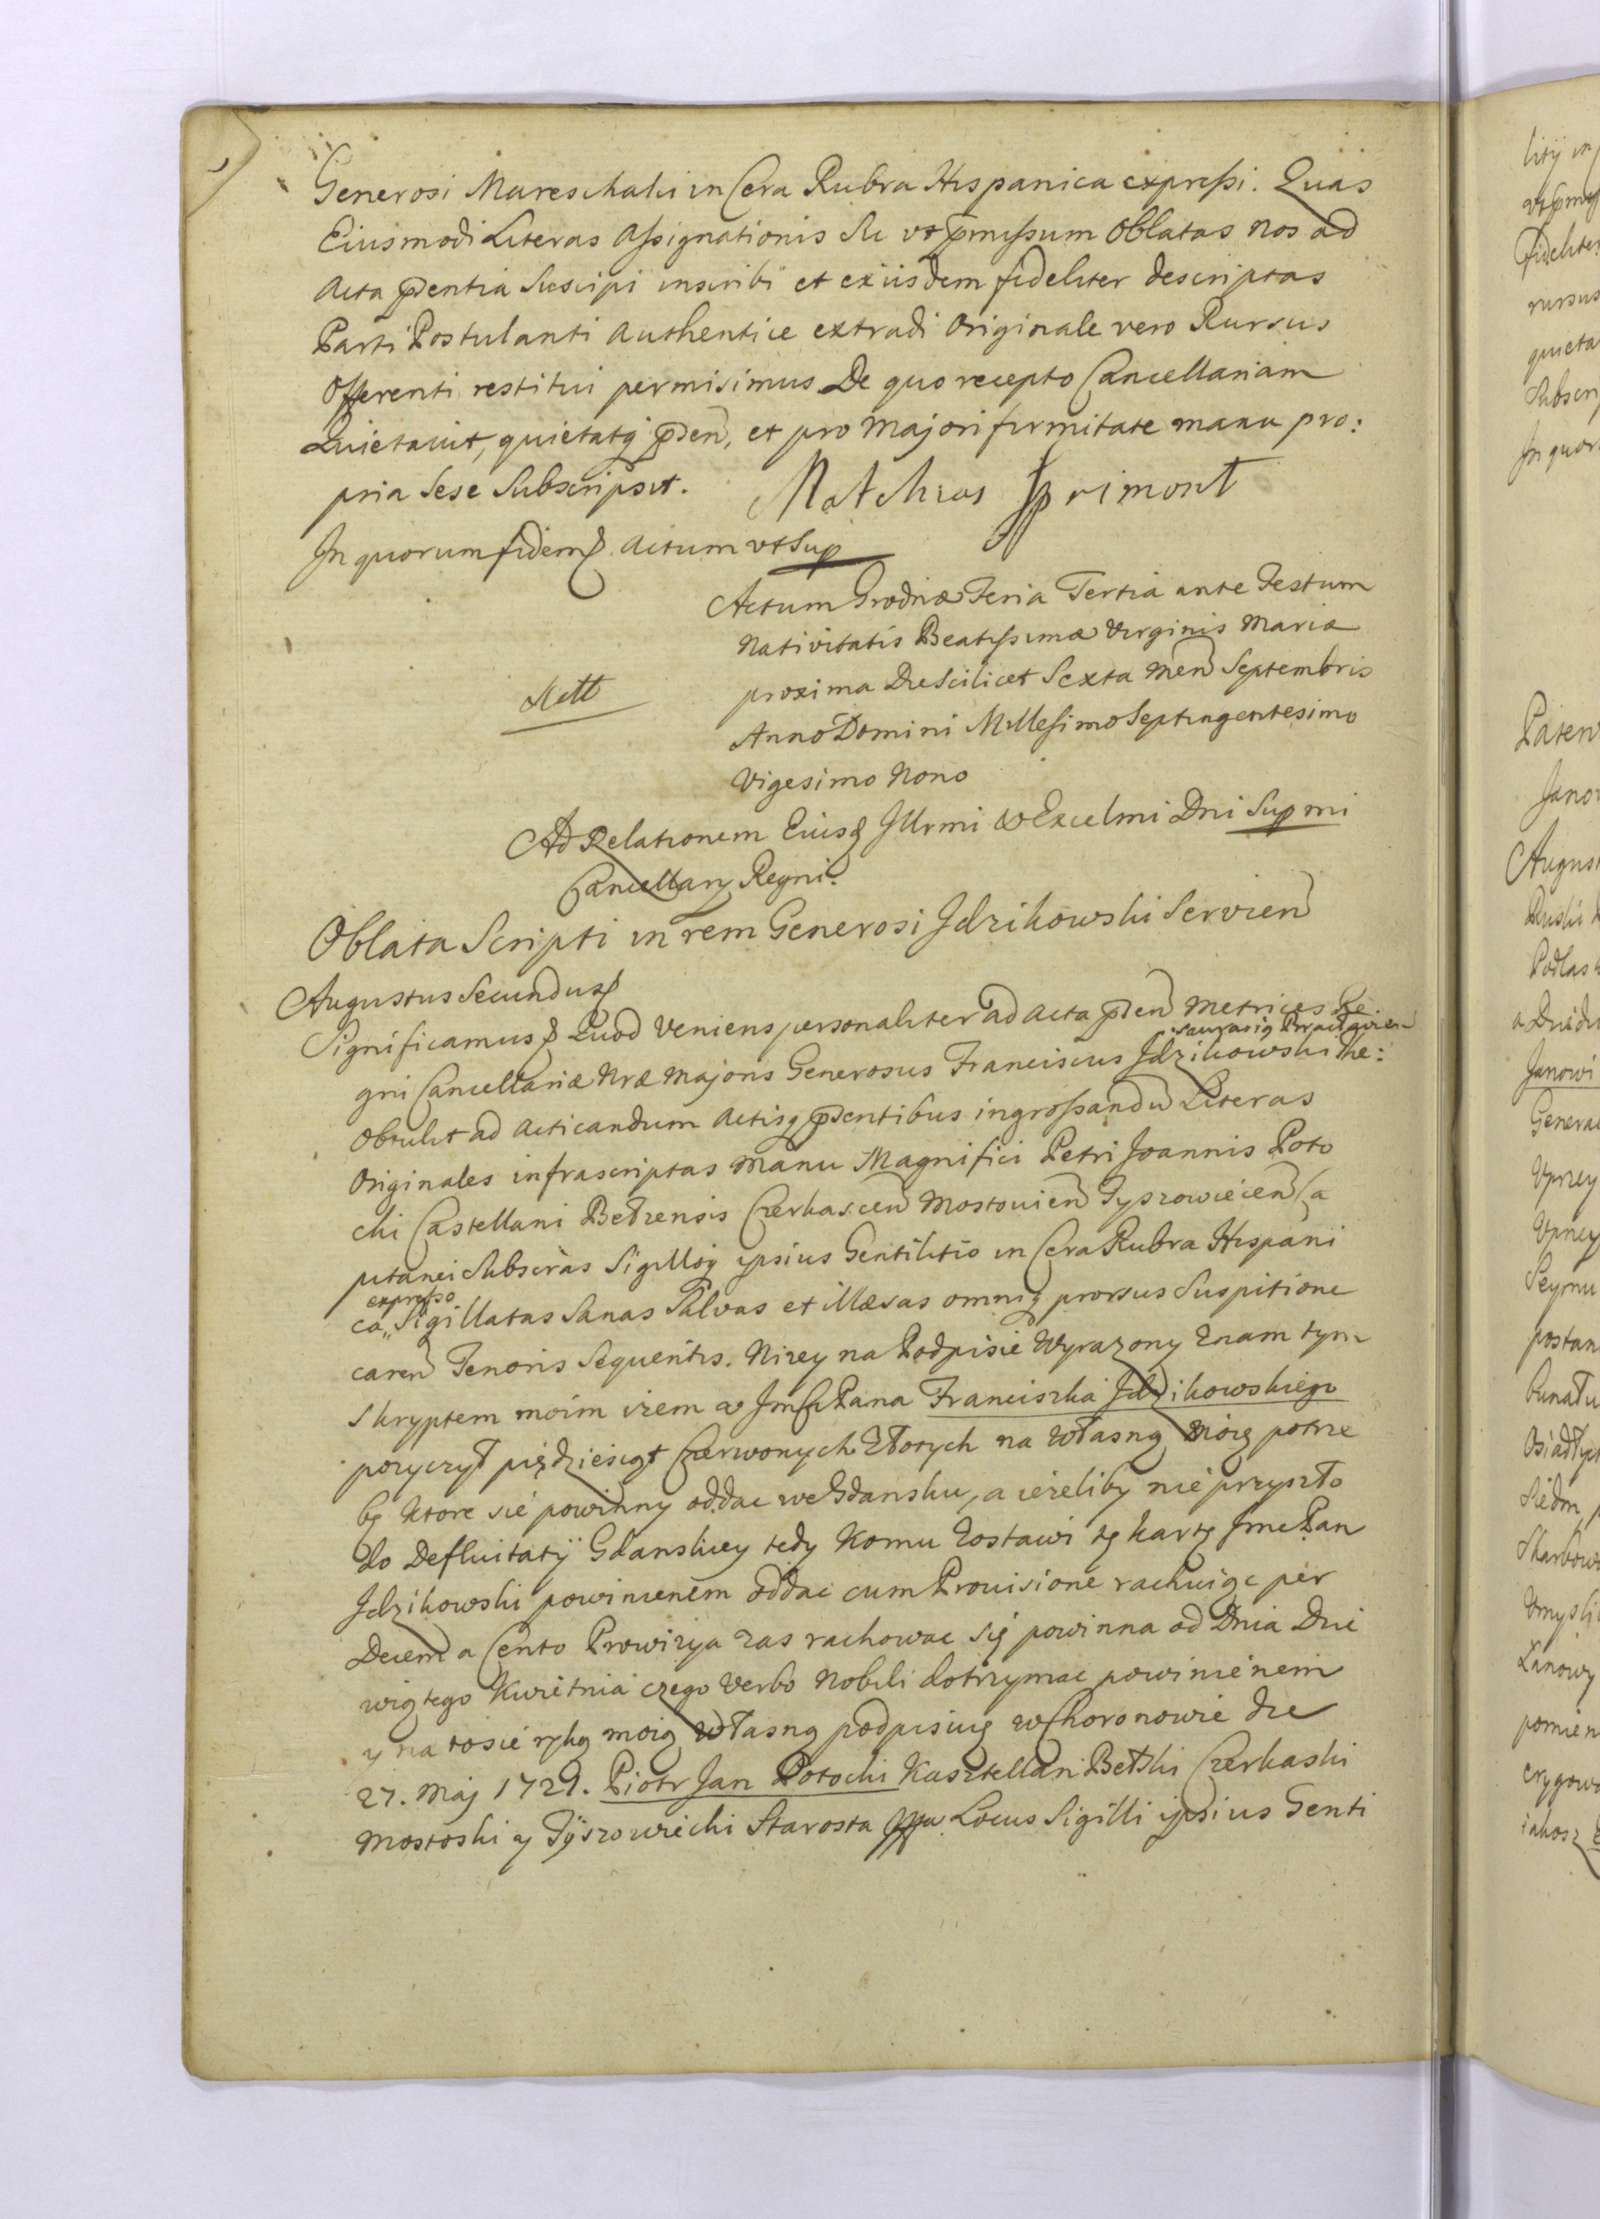 Generosi Mareschalci in Cera Rubra Hispanica expressi. Quas
Eiusmodi Literas Assignationis Sic ut pmissum Oblatas Nos ad
Acta pdentia Suscipi inscribi et exiisdem fideliter descriptas
Parti Postulanti Authentice extradi Originale vero Rursus
Offerenti restitui permisimus De quo recepto Cancellariam
Quietavit, quietatq pden, et pro Majori firmitate manu pro:
pria Sese Subscripsit. Mathias Sprimont
In quorum fidem & Actum ut Sup
Actum Grodnæ Feria Tertia ante Festum
Nativitatis Beatissimæ Virginis Mariæ
proxima Die Scilicet Sexta Men Septembris
Anno Domini Millesimo Septingentesimo
Vigesimo Nono
Ad Relationem Eiusd Illrmi & Excelmi Dni Sup mi
Cancellarij Regni.
Oblata Scripti in rem Generosi Idzikowski Servien
Augustus Secundus &
Significamus & Quod Veniens personaliter ad Acta pden Metrices Re
gni Cancellariæ Nræ Majoris Generosus Franciscus Idzikowski The:
Obtulit ad Acticandum Actisq psentibus ingrossandu Literas
Originales infrascriptas Manu Magnifici Petri Joannis Poto
cki Castellani Bełzensis Czerkascen Mostovien Tyszowiecen Ca
pitanei Subscras Sigilloq ipsius Gentilitio in Cera Rubra Hispani
expresso
ca,, Sigillatas Sanas Salvas et illæsas omniq prorsus Suspitione
caren Tenoris Sequentis. Niżey na Podpisie Wyrazony Znam tym
Skryptem moim iżem u JmCi Pana Franciszka Idzikowskiego
pozyczył piędziesiąt Czerwonych Złotych na własną moię potrze
bę ktore sie powinny oddac we Gdansku, a ieżeliby nie przyszło
do Defluitatÿ Gdanskiey tedy Komu Zostawi tę kartę Jmc Pan
Idzikowski powinienem oddac cum Prouisione rachuiąc per
Decem a Cento Prowizya zas rachowac się powinna od Dnia Dzie
wiątego Kwietnia czego Verbo Nobili dotrzymac powinienem
y na to sie ręką moią własną podpisuię w Choronowie die
27. Maj 1729. Piotr Jan Potocki Kasztellan Bełzki Czerkaski
Mostoski y Tÿszowiecki Starosta Locus Sigilli ipsius Genti